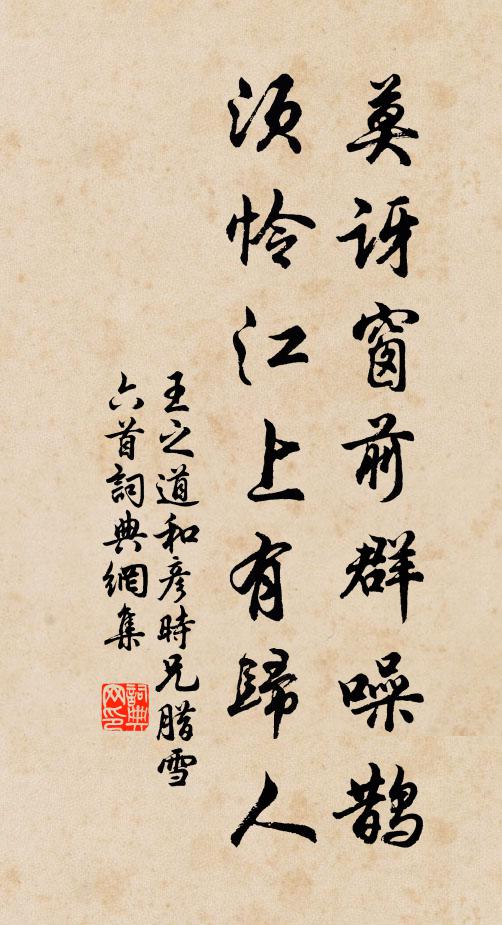 莫訝窗前群噪鵲
須憐江上有歸人
王之道和彥時兄腊雪
六首詞典網集
詞典
网印